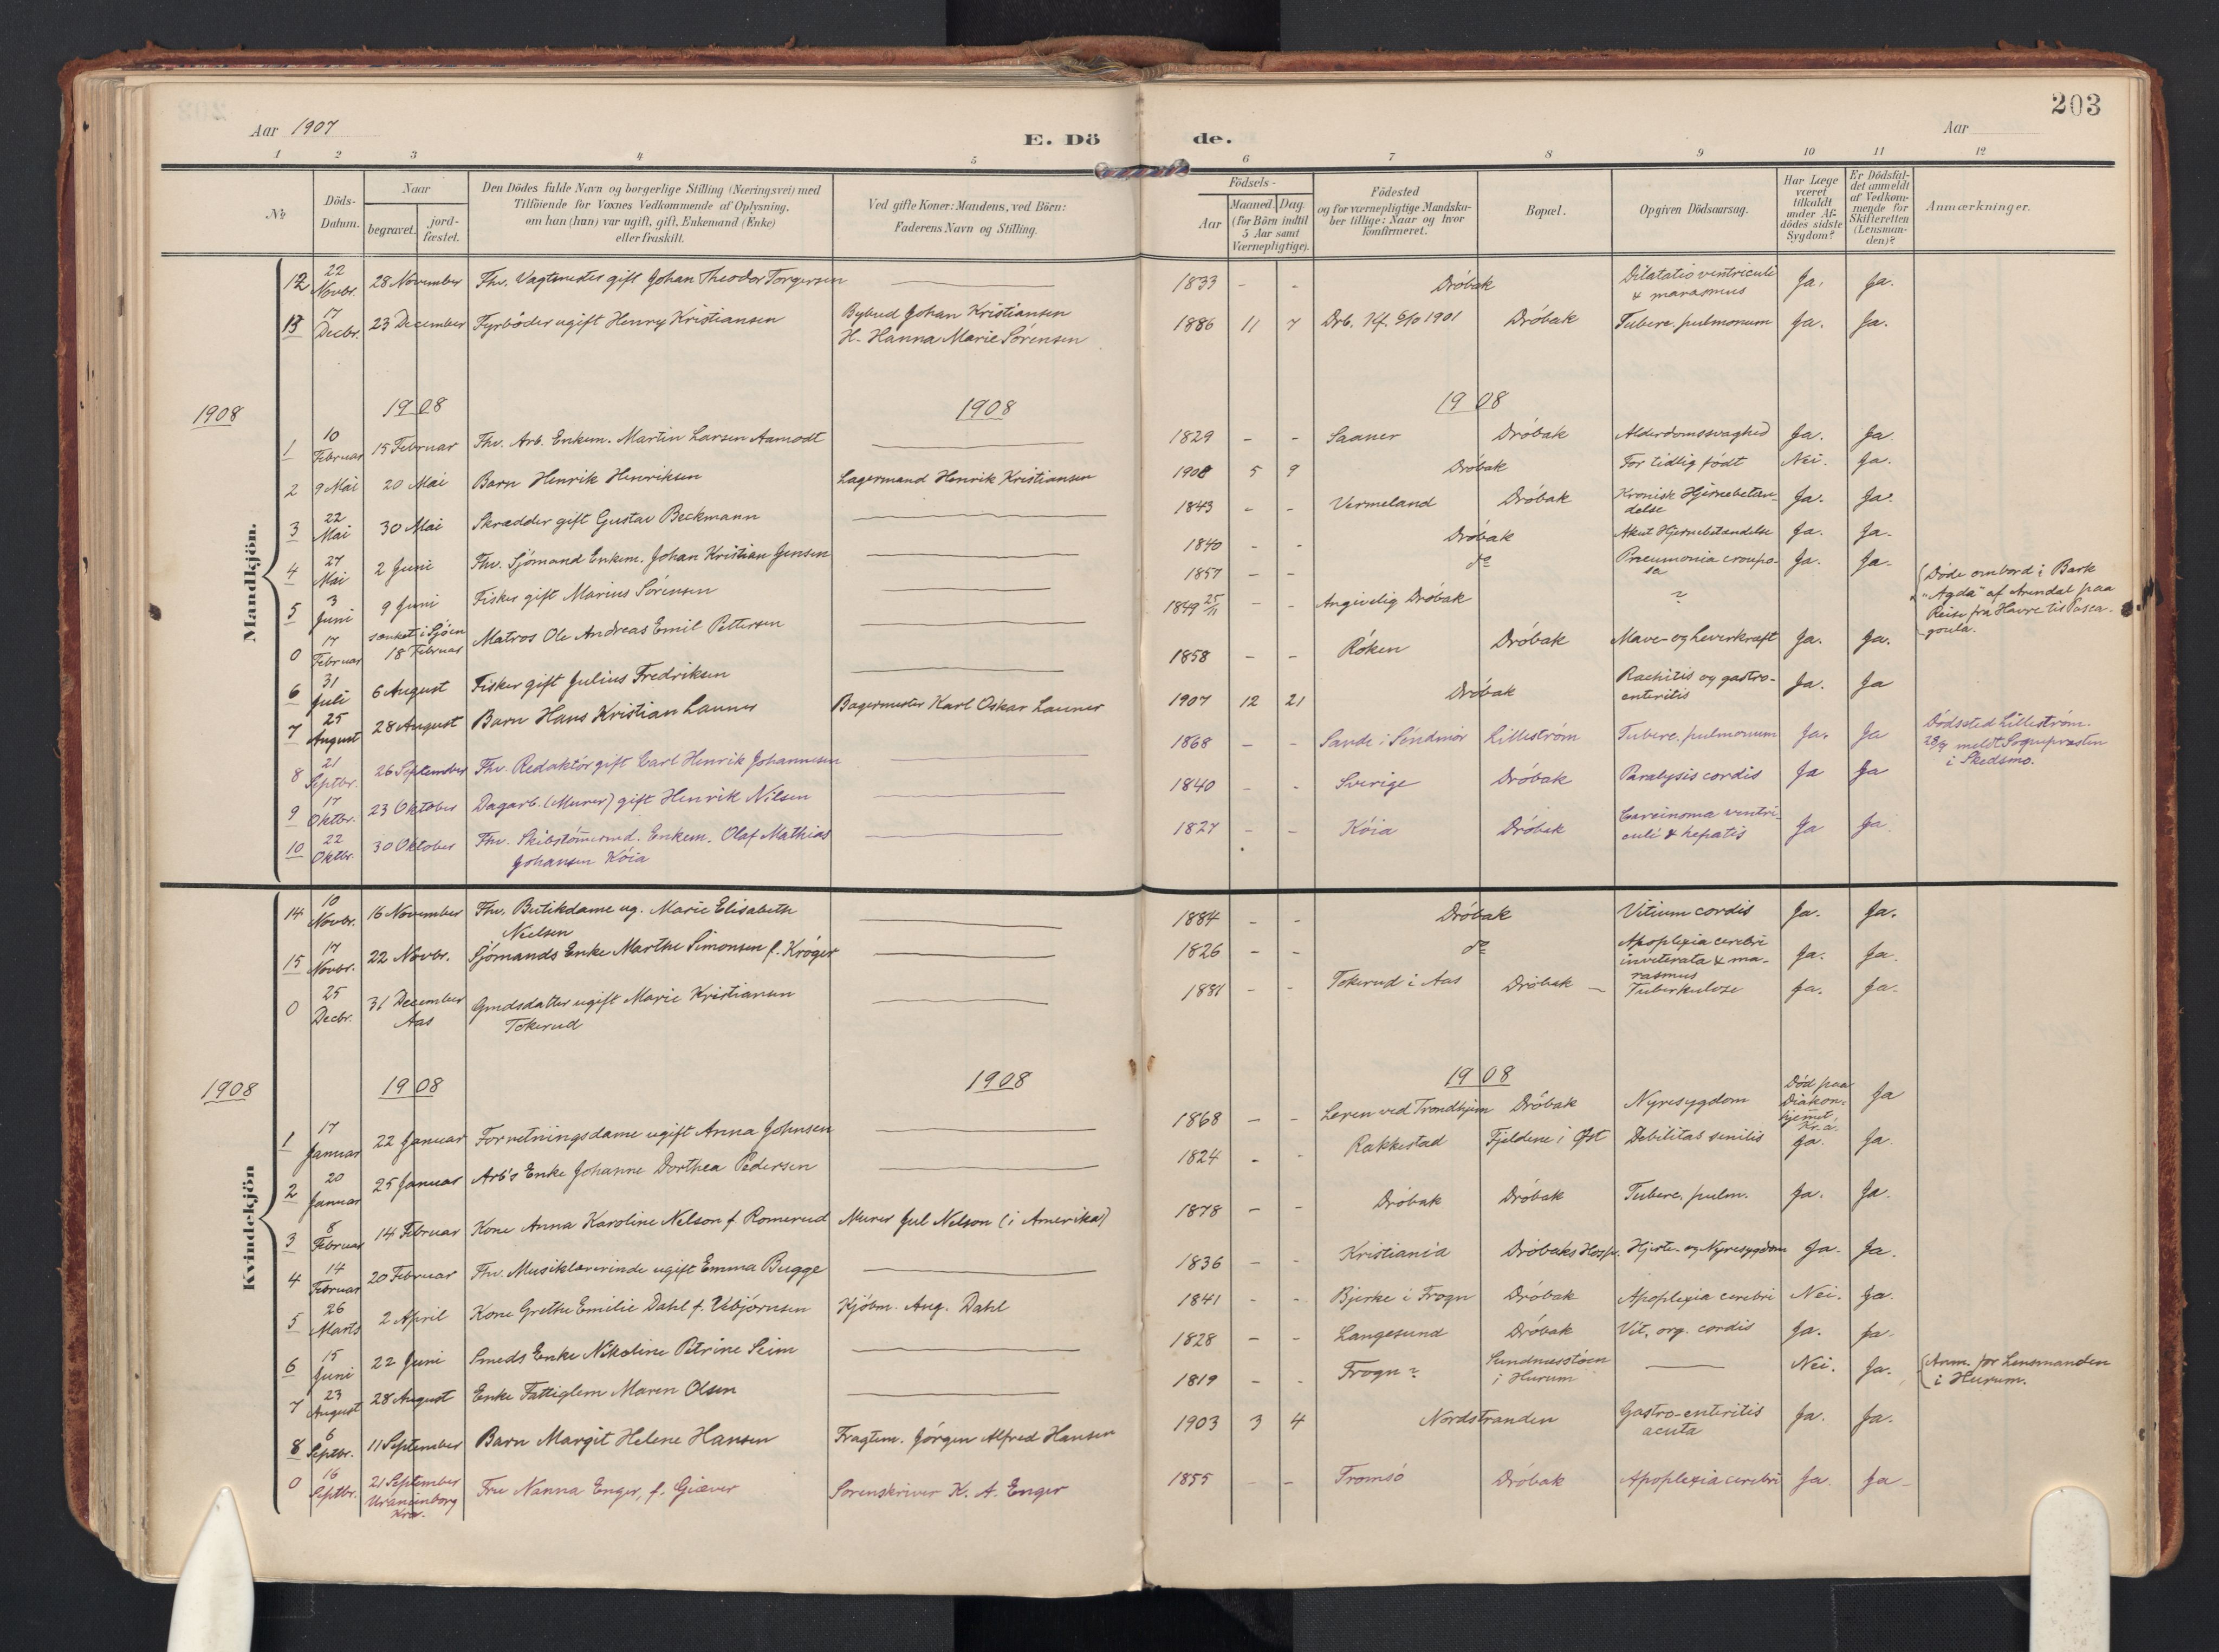 203
Aar 1907
E. Dö
de.
Aar
1 2 3 4 5 6 7 8 9 10 11 12
No
Döds-
Datum.
Naar
begravet.
jord-
fæstet.
Den Dödes fulde Navn og borgerlige Stilling (Næringsvei) med
Tilföiende for Voxnes Vedkommende af Oplysning,
om han (hun) var ugift, gift, Enkemand (Enke)
eller fraskilt.
Ved gifte Koner: Mandens, ved Börn:
Faderens Navn og Stilling.
Födsels-
Aar
Maaned.
Dag.
(for Börn indtil
5 Aar samt
Værnepligtige).
Födested
og for værnepligtige Mandsku-
ber tillige: Naar og hvor
konfirmeret.
Bopæl.
Opgiven Dödsaarsag.
Har Læge
været
tilkaldt
under Af-
dödes sidste
Sygdom?
Er Dödsfal-
det anmeldt
af Vedkom-
mende for
Skifteretten
(Lensman-
den)?
Anmærkninger.
Mandkjön.
12 22 Novbr. 28 November Fhv. Vagtmester gift Johan Theodor Torgersen 1833 - - Dröbak Dilatatio ventriculi & marasmus Ja. Ja.
13 17 Decbr. 23 December Fyrböder ugift Henry Kristiansen Bybud Johan Kristiansen 1886 11 7 Drb. Kf. 6/10 1901 Dröbak Tuberc. pulmonum Ja. Ja.
H. Hanna Marie Sörensen
1908 1908 1908 1908
1 10 Februar 15 Februar Fhv. Arb. Enkem. Martin Larsen Aamodt 1829 - - Saaner Dröbak Alderdomssvaghed Ja. Ja.
2 9 Mai 20 Mai Barn Henrik Henriksen Lagermand Henrik Kristiansen 1908 5 9 Dröbak For tidlig født Nei. Ja.
3 22 Mai 30 Mai Skrædder gift Gustav Beckmann 1843 - - Vermeland Dröbak Kronisk Hjernebetæn-
delse Ja. Ja.
4 27 Mai 2 Juni Fhv. Sjömand Enkem. Johan Kristian Jensen 1840 - - Dröbak Akut Hjernebetændelse Ja. Ja.
5 3 Juni 9 Juni Fisker gift Marius Sörensen 1857 - - do Pneumonia croupo-
sa Ja. Ja.
0 17 Februar sænket i Sjöen 18 Februar Matros Ole Andreas Emil Pettersen 1849 25/11 - - Angivelig Dröbak ? Döde ombord i Bark
"Agda" af Arendal paa
Reise fra Havre til Pasca-
goula.
6 31 Juli 6 August Fisker gift Julius Fredriksen 1858 - - Röken Dröbak Mave- og Leverkræft Ja. Ja.
7 25 August 28 August Barn Hans Kristian Launer Bagermester Karl Oskar Launer 1907 12 21 Dröbak Rachitis og gastro-
enteritis Ja. Ja
8 21 Septbr. 26 September Fhv. Redaktör gift Carl Henrik Johannesen 1868 - - Sande i Söndmör Lilleström Tuberc. pulmonum Ja. Ja Dödssted Lilleström.
28/9 meldt Sognepræsten
i Skedsmo.
9 17 Oktbr. 23 Oktober Dagarb. (Murer) gift Henrik Nilsen 1840 - - Sverige Dröbak Paralysis cordis Ja Ja
10 22 Oktbr. 30 Oktober Fhv. Skibstömmermd. Enkem. Olaf Mathias 1827 - - Köia Dröbak Carcinoma ventri-
culi & hepatis Ja Ja
Johansen Köia
Kvindekjön
14 10 Novbr. 16 November Fhv. Butikdame ug. Marie Elisabeth 1884 - - Dröbak Vitium cordis Ja. Ja.
Nielsen
15 17 Novbr. 22 Novbr. Sjömands Enke Marthe Simonsen f. Kröger 1826 - - do Apoplexia cerebri
inveterata & ma-
rasmus Ja. Ja.
0 25 Decbr. 31 December Aas Gmdsdatter ugift Marie Kristiansen 1881 - - Tokerud i Aas Dröbak Tuberkulose Ja. Ja.
Tokerud
1908 1908 1908 1908
1 17 Januar 22 Januar Forretningsdame ugift Anna Johnsen 1868 - - Leren ved Trondhjem Dröbak Nyresygdom Död paa
Diakon-
hjemmet,
Kr.a. Ja
2 20 Januar 25 Januar Arb's Enke Johanne Dorthea Pedersen 1824 - - Rakkestad Fjeldene i Øst Debilitas senilis Ja. Ja.
3 8 Februar 14 Februar Kone Anna Karoline Nelson f. Romerud Murer Jul Nelson (i Amerika) 1878 - - Dröbak Dröbak Tuberc. pulm. Ja. Ja.
4 14 Februar 20 Februar Fhv. Musiklærerinde ugift Emma Bugge 1836 - - Kristiania Dröbaks Hosp. Hjerte- og Nyresygdom Ja. Ja.
5 26 Marts 2 April Kone Grethe Emilie Dahl f. Esbjörnsen Kjöbm. Aug. Dahl 1841 - - Bjerke i Frogn Dröbak Apoplexia cerebri Nei. Ja.
6 15 Juni 22 Juni Smeds Enke Nikoline Petrine Seim 1828 - - Langesund Dröbak Vit. org. cordis Ja. Ja.
7 23 August 28 August Enke Fattiglem Maren Olsen 1819 - - Frogn ? i Hurum Nei. Ja. Anm. for Lensmanden
i Hurum.
8 6 Septbr. 11 September Barn Margit Helene Hansen Fragtem. Jörgen Alfred Hansen 1903 3 4 Nordstranden Gastro-enteritis
acuta Ja. Ja.
0 16 Septbr. 21 September Uranienborg Kra. Fru Nanna Enger, f. Giæver Sorenskriver K. A. Enger 1855 - - Tromsö Dröbak Apoplexia cerebri Ja. Ja